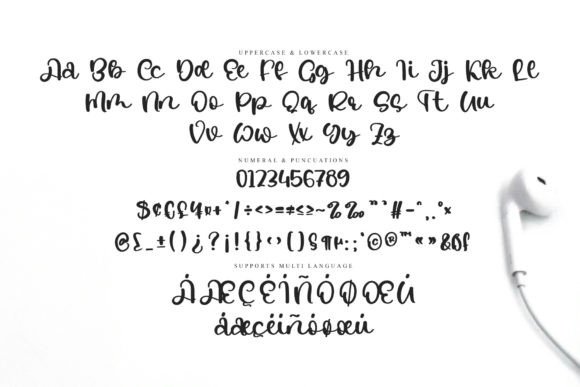 UPPERCASE & LOWERCASE
Aa Bb Cc Dd Ee Ff Gg Hh Ii Jj Kk Ll
Mm Nn Oo Pp Qq Rr Ss Tt Uu
Vv Ww Xx Yy Zz
NUMERAL & PUNCUATIONS
0123456789
$¢€£¥¤+*/÷<>=≠≤≥~%‰"'#-~,.°×
@£_±()¿?¡!{}‹›()§¶:;'©®™«»&
SUPPORTS MULTI LANGUAGE
ÁÆÇËÍÑÓØŒÚ
áæçëíñóøœú